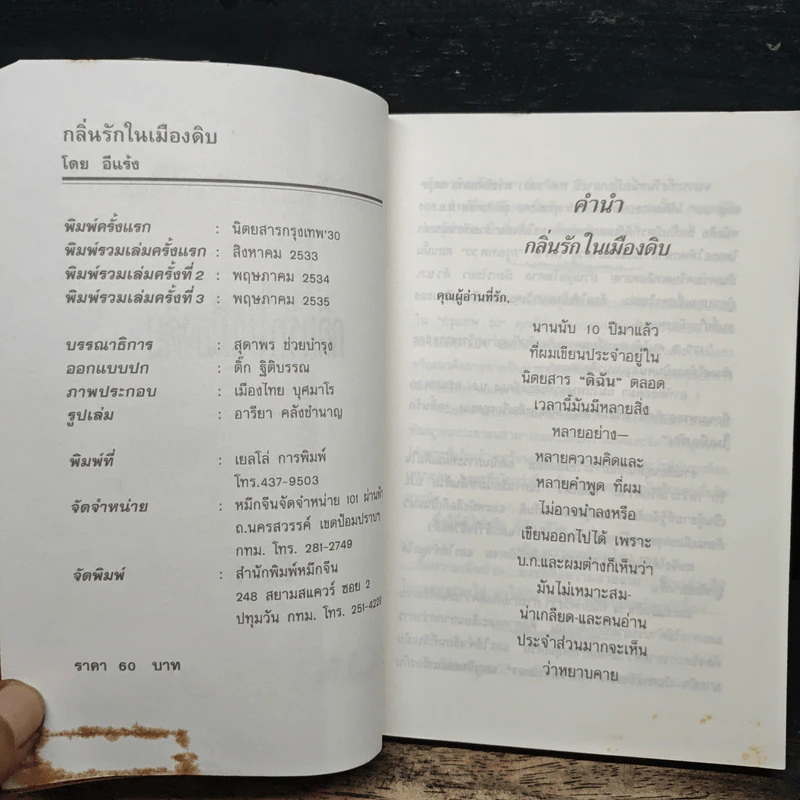 กลิ่นรักในเมืองดิบ
โดย อีแร้ง
พิมพ์ครั้งแรก : นิตยสารกรุงเทพ'30
พิมพ์รวมเล่มครั้งแรก : สิงหาคม 2533
พิมพ์รวมเล่มครั้งที่ 2 : พฤษภาคม 2534
พิมพ์รวมเล่มครั้งที่ 3 : พฤษภาคม 2535
บรรณาธิการ : สุดาพร ช่วยบำรุง
ออกแบบปก : ติ๊ก ฐิติบรรณ
ภาพประกอบ : เมืองไทย บุศมาโร
รูปเล่ม : อารียา คลังชำนาญ
พิมพ์ที่ : เยลโล่ การพิมพ์
โทร.437-9503
จัดจำหน่าย : หมึกจีนจัดจำหน่าย 101 ผ่านฟ้า
ถ.นครสวรรค์ เขตป้อมปราบฯ
กทม. โทร. 281-2749
จัดพิมพ์ : สำนักพิมพ์หมึกจีน
248 สยามสแควร์ ซอย 2
ปทุมวัน กทม. โทร. 251-4228
ราคา 60 บาท
คำนำ
กลิ่นรักในเมืองดิบ
คุณผู้อ่านที่รัก,
นานนับ 10 ปีมาแล้ว
ที่ผมเขียนประจำอยู่ใน
นิตยสาร “ดิฉัน” ตลอด
เวลานี้มันมีหลายสิ่ง
หลายอย่าง—
หลายความคิดและ
หลายคำพูด ที่ผม
ไม่อาจนำลงหรือ
เขียนออกไปได้ เพราะ
บ.ก.และผมต่างก็เห็นว่า
มันไม่เหมาะสม-
น่าเกลียด-และคนอ่าน
ประจำส่วนมากจะเห็น
ว่าหยาบคาย